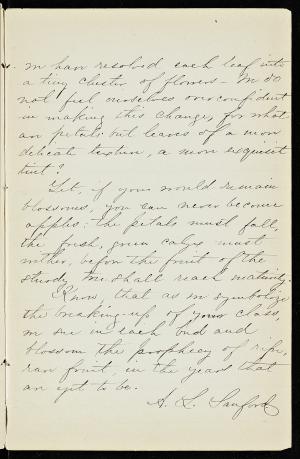 we have resolved each leaf into
a tiny cluster of flowers - We do
not feel ourselves overconfident
in making this change, for what
are petals but leaves of a more
delicate texture, a more exquisite
tint?
Yet, if you would remain
blossoms, you can never become
apples: the petals must fall,
the fresh, green calyx must
wither, before the fruit of the
sturdy tree shall reach maturity.
Know that as we symbolize
the breaking-up of your class,
we see in each bud and
blossom the prophecy of ripe,
rare fruit, in the years that
are yet to be.
A. L. Sanford